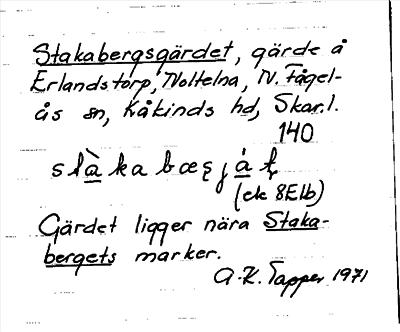 Stakabergsgärdet, gärde å
Erlandstorp, Noltelna, N. Fågel-
ås sn, Kåkinds hd, Skar. l.
140
Gärdet ligger nära Staka-
bergets marker.
A.-K. Tapper 1971